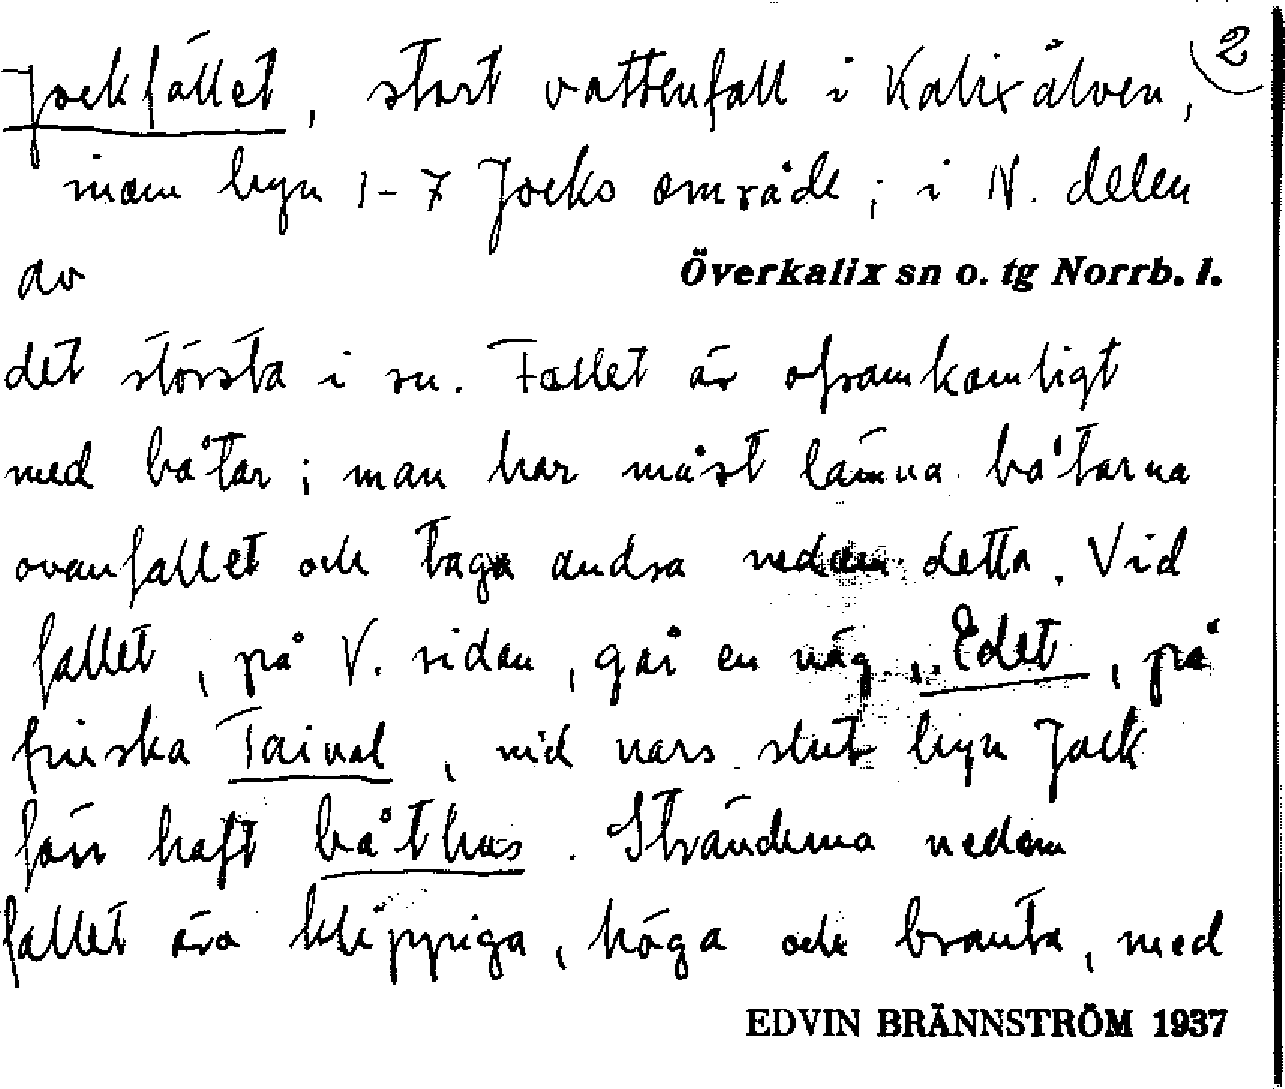 Jockfället, stort vattenfall i Kalixälven, 2
inom byn 1-7 Jocks område; i N. delen
av Överkalix sn o. tg Norrb. l.
det största i sn. Fallet är oframkomligt
med båtar; man har måst lämna båtarna
ovanfallet och taga andra nedom detta. Vid
fallet, på V. sidan, går en väg, Edet, på
finska Taival, vid vars slut byn Jock
förr haft båthus. Stränderna nedom
fallet äro klippiga, höga och branta, med
EDVIN BRÄNNSTRÖM 1937